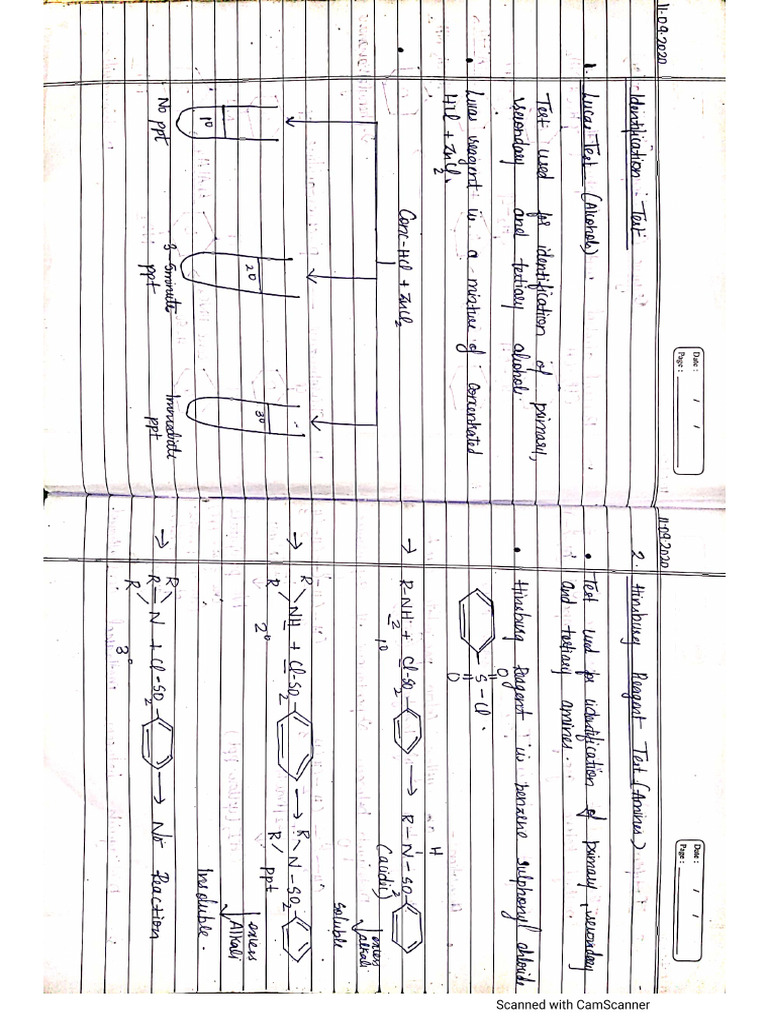 11.09.2020
Date : / /
Page :
Identification Test
1. Lucas Test (Alcohols)
Test used for identification of primary,
secondary and tertiary alcohols.
• Lucas reagent is a mixture of concentrated
HCl + ZnCl2.
Conc-HCl + ZnCl2
1° 2° 3°
No ppt 3-5 minute ppt Immediate ppt
11.09.2020
Date : / /
Page :
2. Hinsburg Reagent Test (Amines)
• Test used for identification of primary, secondary
and tertiary amines.
• Hinsburg Reagent is benzene sulphonyl chloride
O
S-Cl.
O
H
→ R-NH2 + Cl-SO2 → R-N-SO2
1° (acidic)
excess alkali
Soluble
→ R R NH + Cl-SO2 → R R N-SO2
2° ppt
excess Alkali
Insoluble.
→ R R R N + Cl-SO2 → No Reaction
3°
Scanned with CamScanner